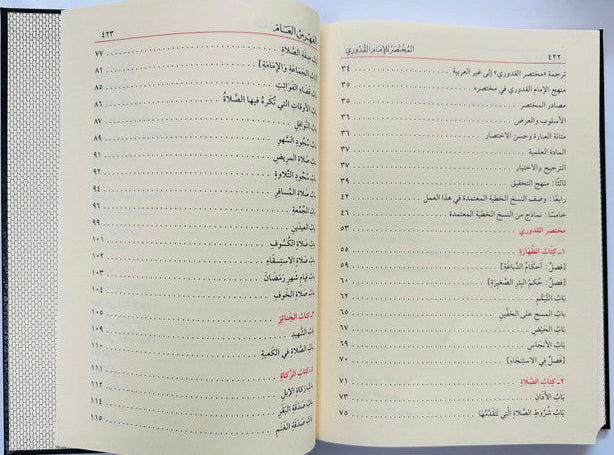 ٤٢٢ المُخْتَصَرُ لِلإِمَامِ القُدُورِي
ترجمة «مختصر القدوري» إلى غير العربية ٣٤
منهج الإمام القدوري في مختصره ٣٥
مصادر المختصر ٣٥
الأسلوب والعرض ٣٦
متانة العبارة وحسن الاختصار ٣٦
المادة العلمية ٣٧
الترجيح والاختيار ٣٧
ثالثًا: منهج التحقيق ٣٩
رابعًا: وصف النسخ الخطية المعتمدة في هذا العمل ٤٢
خامسًا: نماذج من النسخ الخطية المعتمدة ٤٦
مختصر القدوري ٥٣
١- كِتَابُ الطَّهَارَةِ ٥٥
[فصلٌ: أحكَامُ الدِّبَاغَةِ] ٥٩
[فصلٌ: حُكمُ البِئرِ الصَّغِيرَةِ] ٦٠
بَابُ التَّيَمُّمِ ٦٢
بَابُ المسحِ على الخفَّينِ ٦٥
بَابُ الحَيْضِ ٦٧
بَابُ الأَنْجَاسِ ٦٩
[فَصلٌ في الاستِنجَاءِ] ٧٠
٢- كِتَابُ الصَّلاةِ ٧١
بَابُ الأَذَانِ ٧٣
بَابُ شُرُوطِ الصَّلاةِ الَّتِي تَتَقَدَّمُهَا ٧٥
الفِهْرِسُ العَامّ ٤٢٣
بَابُ صِفَةِ الصَّلاةِ ٧٧
[بَابُ الجَمَاعَةِ وَالإِمَامَةِ] ٨١
بَابُ قَضَاءِ الفَوَائِتِ ٨٦
بَابُ الأَوقَاتِ التي تُكرَهُ فيهَا الصَّلاةُ ٨٧
بَابُ النَّوَافِلِ ٨٩
بَابُ سُجُودِ السَّهوِ ٩٠
بَابُ صَلاةِ المريضِ ٩١
بَابُ سُجُودِ التِّلاوَةِ ٩٤
بَابُ صَلاةِ المُسَافِرِ ٩٦
بَابُ الجُمُعَةِ ٩٧
بَابُ العِيدَينِ ٩٩
بَابُ صَلاةِ الكُسُوفِ ١٠١
بَابُ صَلاةِ الاستِسقَاءِ ١٠٢
بَابُ قِيَامِ شَهرِ رَمَضَانَ ١٠٣
بَابُ صَلاةِ الخَوفِ ١٠٤
٣- كِتابُ الجَنَائزِ ١٠٥
بَابُ الشَّهِيدِ ١٠٩
بَابُ الصَّلاةِ في الكَعبَةِ ١١٠
٤- كِتَابُ الزَّكَاةِ ١١١
بَابُ زَكَاةِ الإِبِلِ ١١٢
بَابُ صَدَقَةِ البَقَرِ ١١٤
بَابُ صَدَقَةِ الغَنَمِ ١١٥